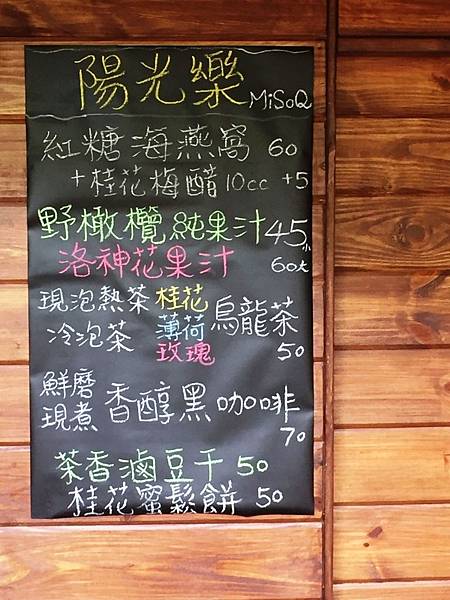 陽光樂 MiSoQ
紅糖海燕窩 60
+桂花梅醋10cc +5
野橄欖純果汁45小
洛神花果汁 60大
現泡熱茶 桂花
冷泡茶 薄荷 烏龍茶
玫瑰 50
鮮磨
現煮 香醇黑咖啡
70
茶香滷豆干 50
桂花蜜鬆餅 50